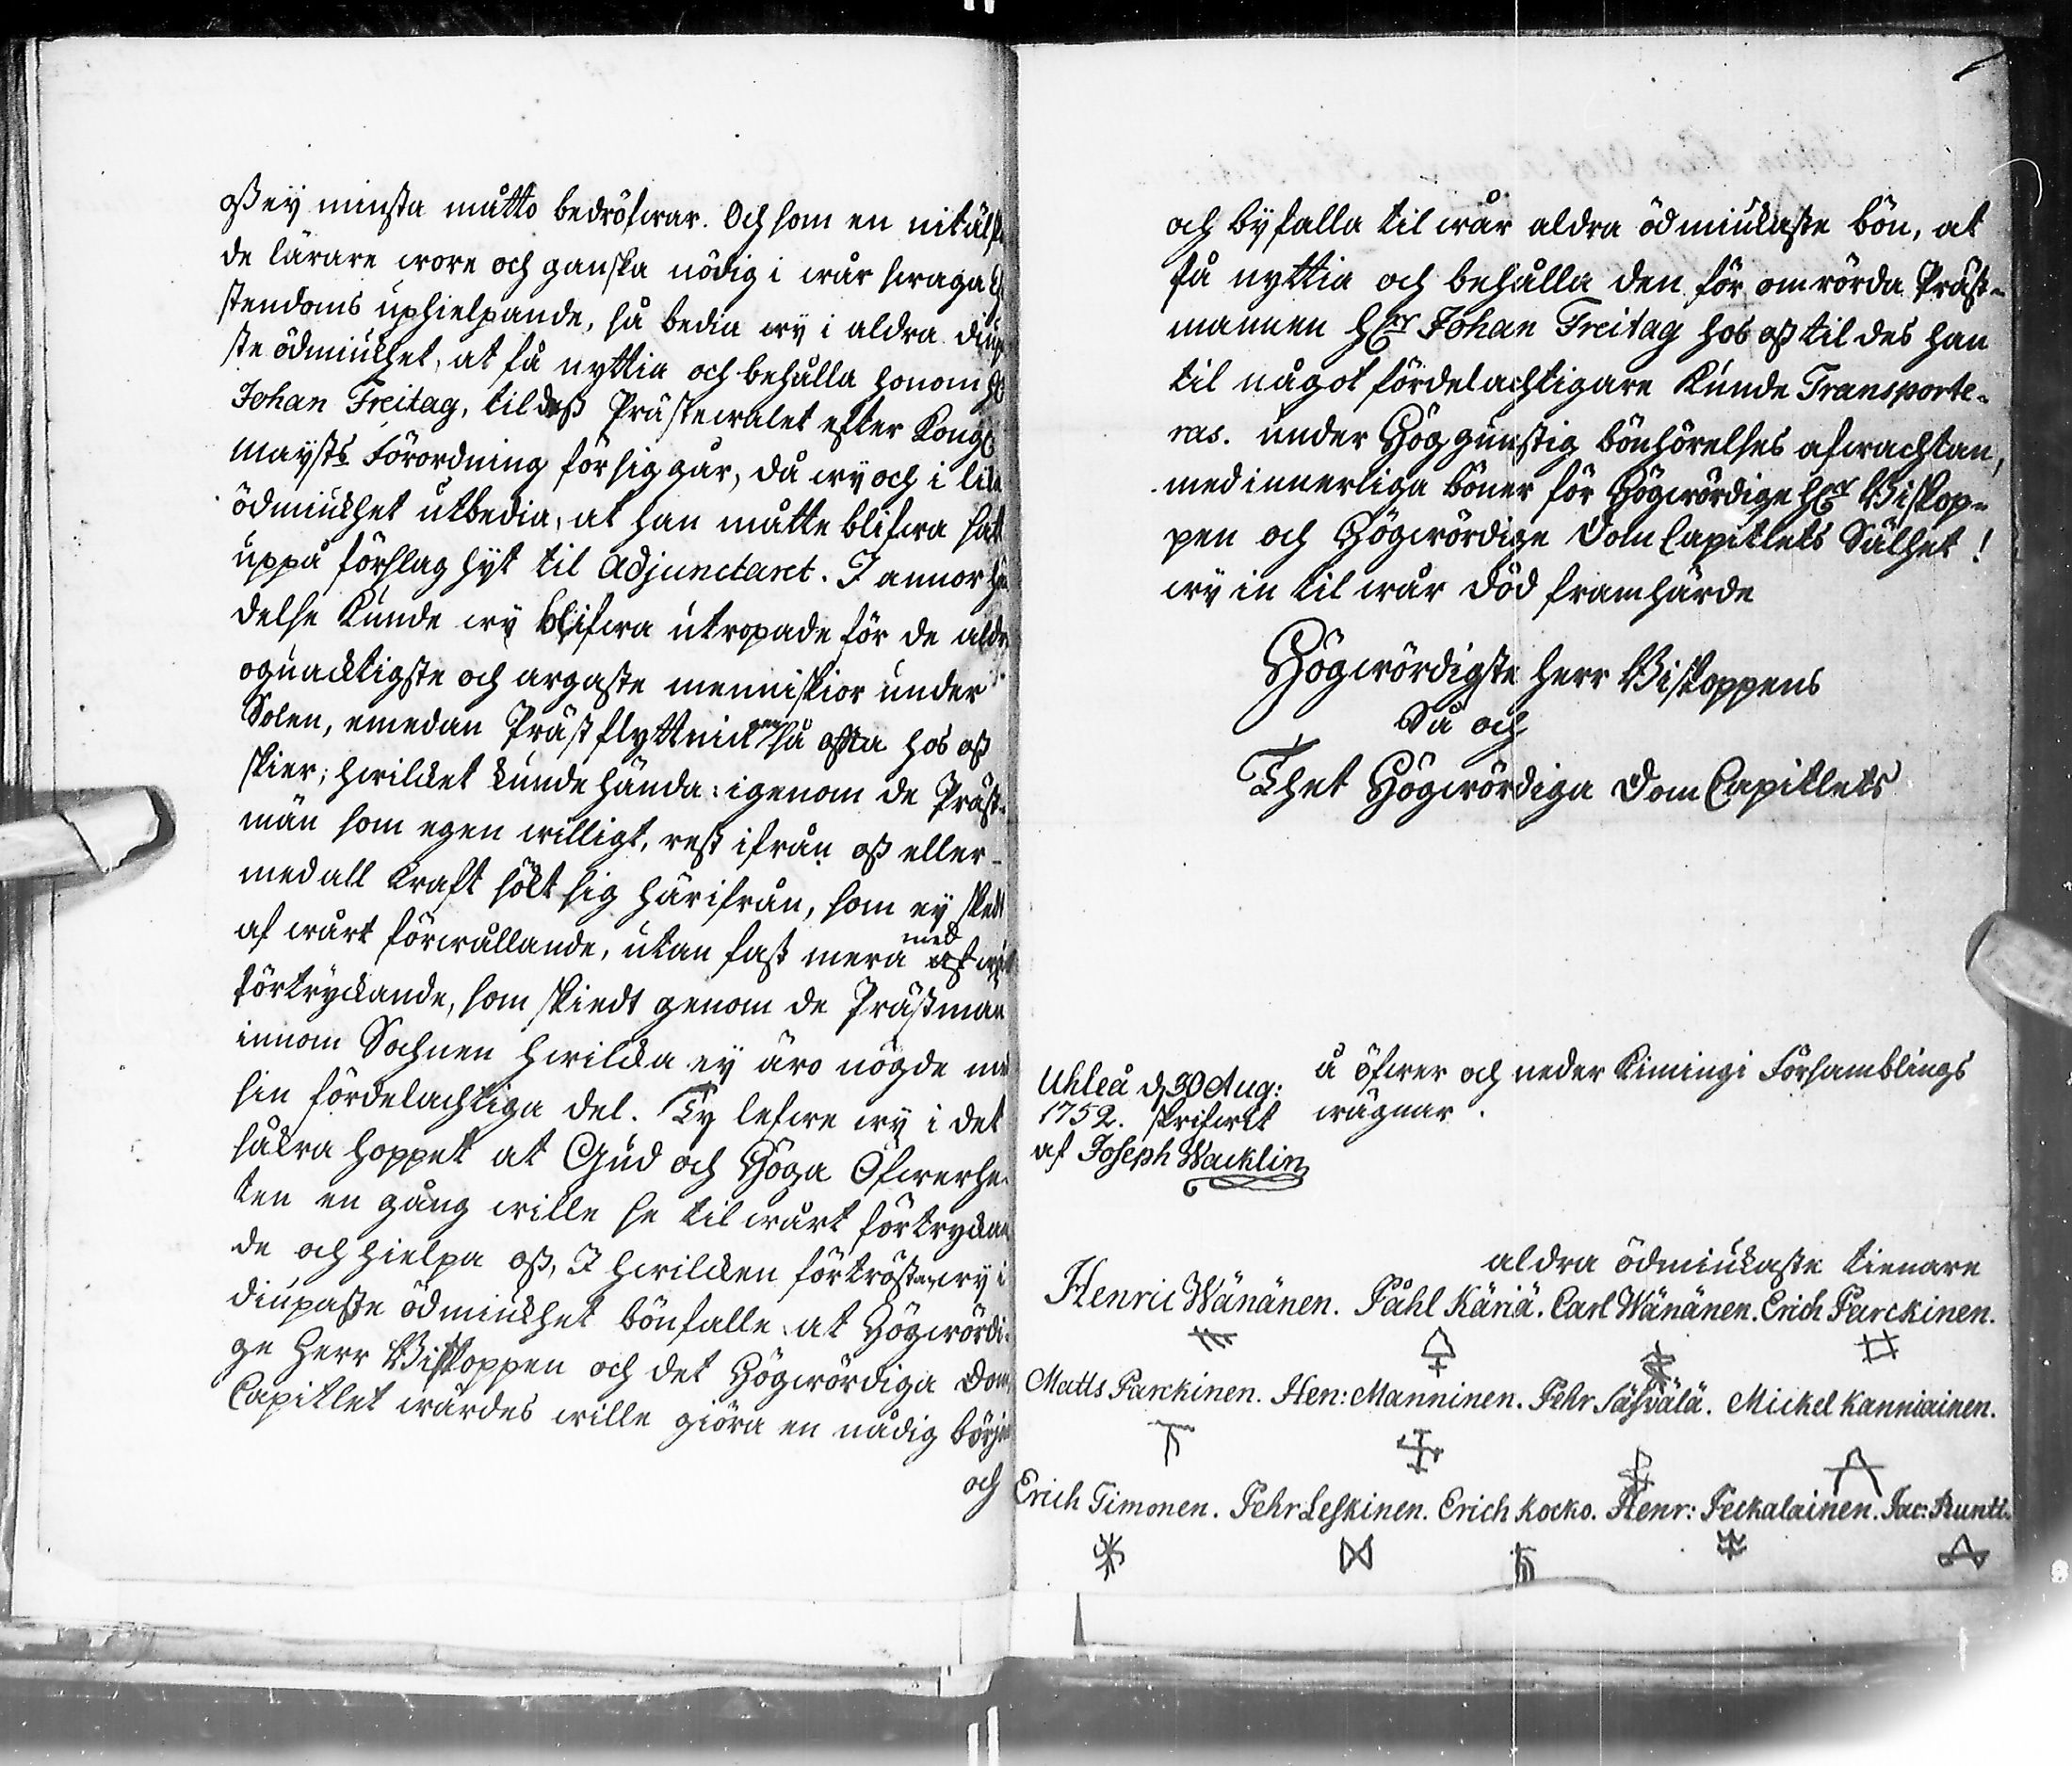 oss ey minsta måtto bedröfwar. Och som en nitälsk
de lärare wore och ganska nödig i wår swaga
stendoms uphielpande, så bedia wy i aldra diup
ste ödmiukhet, at få nyttia och behålla honom
Johan Freitag, til dess Prästewalet efter Kongl
Mayst:s Förordning försiggår, då wy och i lika
ödmiukhet utbedia, at han måtte blifwa satt
uppå förslag hyt til Adjunctaret. I annor hän
delse kunde wy blifwa utropade för de aldra
oguacktigste och argaste menniskior under
Solen, emedan Präst flyttningen så ofta hos oss
skier; hwilcket kunde hända: igenom de Präst-
män som egen willigt, rest ifrån oss eller
med all kraft sökt sig härifrån, som ey skedt
af wårt förwållande, utan fast mera med wårt
förtryckande, som skiedt genom de Prästmän
innom Sochnen hwilcka ey äro nögde med
sin fördelachtiga del. Ty lefwe wy i det
säkra hoppet at Gud och Höga Öfwerhe-
ten en gång wille se til wårt förtryckan
de och hielpa oss, I hwilcken förtröstan wy i
diupaste ödmiukhet bönfalle at Högwördi-
ge Herr Biskoppen och det Högwördiga Dom
Capitlet wärdes wille giöra en nådig början
och
och byfalla til wår aldra ödmiukaste bön, at
få nyttia och behålla den för omrörda Präst-
mannen H:r Johan Freitag hos oss til des han
til något fördelachtigare kunde Transporte-
ras. under Höggunstig bönhörelses afwachtan,
med innerliga böner för Högwördige H:r Biskop-
pen och Högwördige Dom Capitlets Sälhet!
wy in til wår död framhärde
Högwördigste Herr Biskoppens
Så och
Thet Högwördiga Dom Capitlets
Uhleå d. 30 Aug:
1752. skrifwit
af Joseph Wacklin
å öfwer och neder Kimingi Församblings
wägnar.
aldra ödmiukaste tienare
Henric Wänänen. Påhl Käriä. Carl Wänänen. Erich Parckinen.
Matts Parckinen. Hen: Manninen. Pehr Säfvälä. Mickel Kanniainen.
Erich Timonen. Pehr Leskinen. Erich Kocko. Henr: Peckalainen. Jac: Runtt.